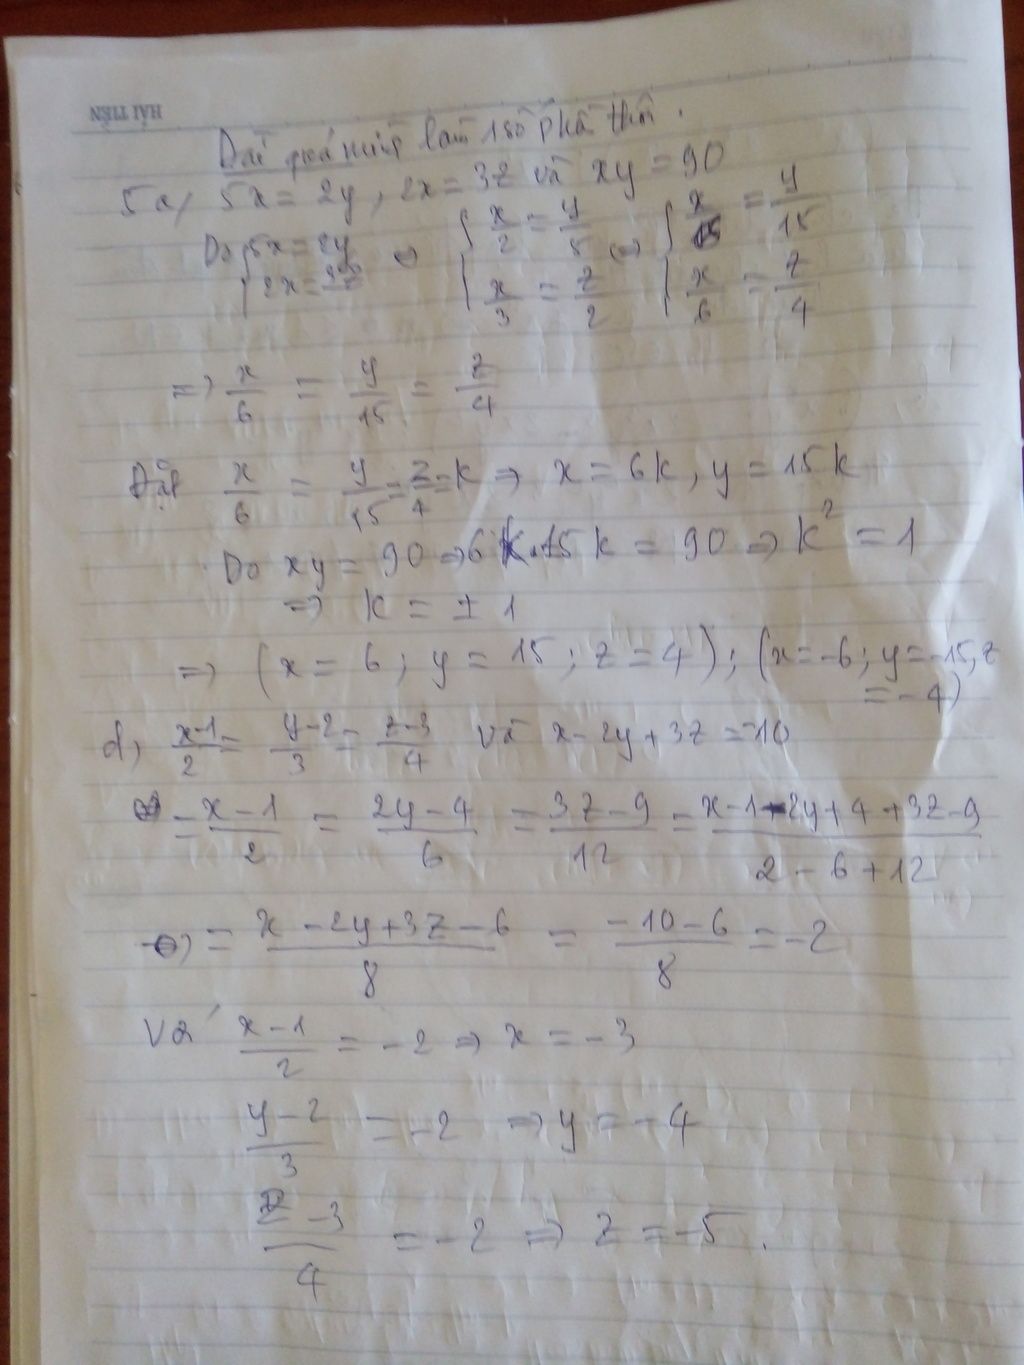 HẢI TIẾN
Dài quá mình làm 1 số phần thôi.
5a, 5x = 2y, 2x = 3z và xy = 90
Do { 5x = 2y ⇔ { x/2 = y/5 ⇔ { x/6 = y/15
{ 2x = 3z { x/3 = z/2 { x/6 = z/4
=> x/6 = y/15 = z/4
Đặt x/6 = y/15 = z/4 = k => x = 6k, y = 15k
Do xy = 90 => 6k.15k = 90 => k² = 1
=> k = ± 1
=> (x = 6; y = 15; z = 4); (x = -6; y = -15, z
= -4)
d, x-1/2 = y-2/3 = z-3/4 và x - 2y + 3z = -10
= x-1/2 = 2y-4/6 = 3z-9/12 = x-1-2y+4+3z-9/2-6+12
= x-2y+3z-6/8 = -10-6/8 = -2
Vả x-1/2 = -2 => x = -3
y-2/3 = -2 => y = -4
z-3/4 = -2 => z = -5.